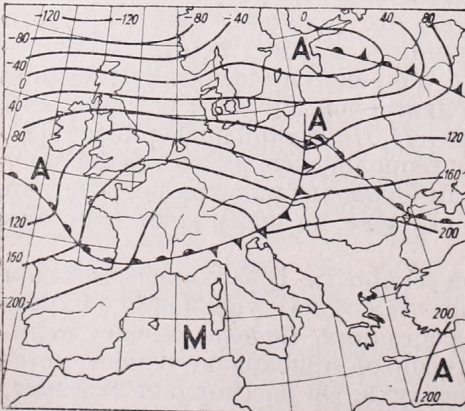 -120 -120 -80 -40 0 40 80
-80
-40
0
40
80
A
A
A
120
160
200
120
150
200
M
200
A
200